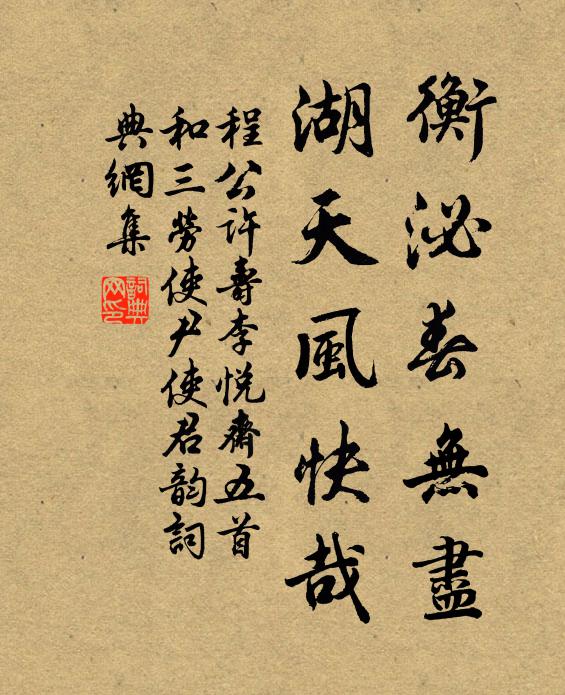 衡泌春無盡
湖天風快哉
程公許壽李悅齋五首
和三勞使尹使君韵詞
典網集
詞典网印